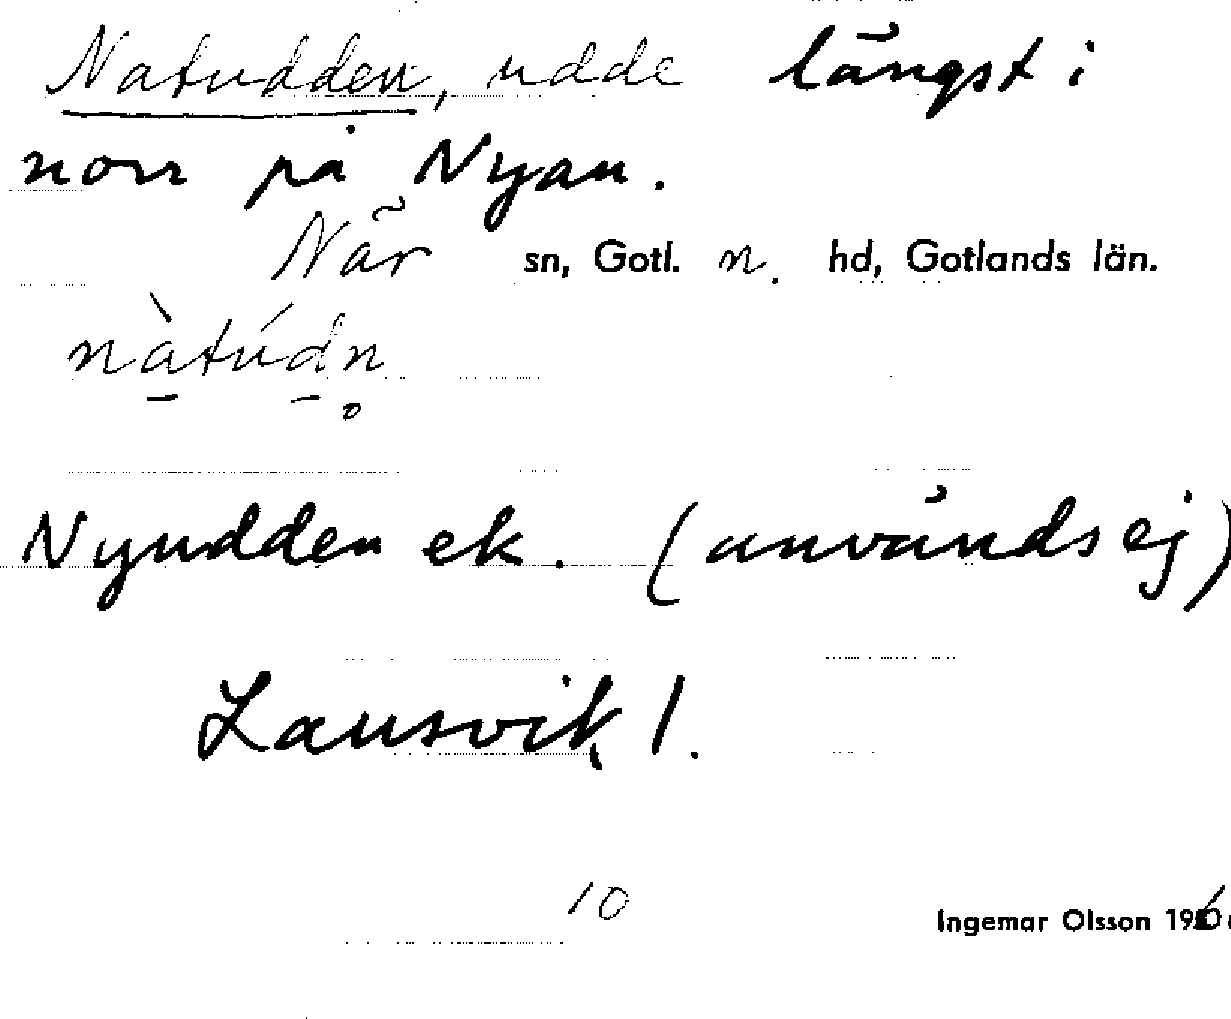 Natudden, udde längst i
norr på Nyan.
När sn, Gotl. n. hd, Gotlands län.
nàtúdn
Nyudden ek. (används ej)
Lausvik 1.
10
Ingemar Olsson